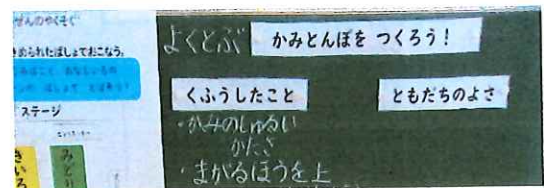 ぜんのやくそく
きめられたばしょでおこなう。
ステージ
きいろ
みどり
よくとぶ かみとんぼを つくろう！
くふうしたこと
ともだちのよさ
・かみのしゅるい
かたさ
・まがるほうを上